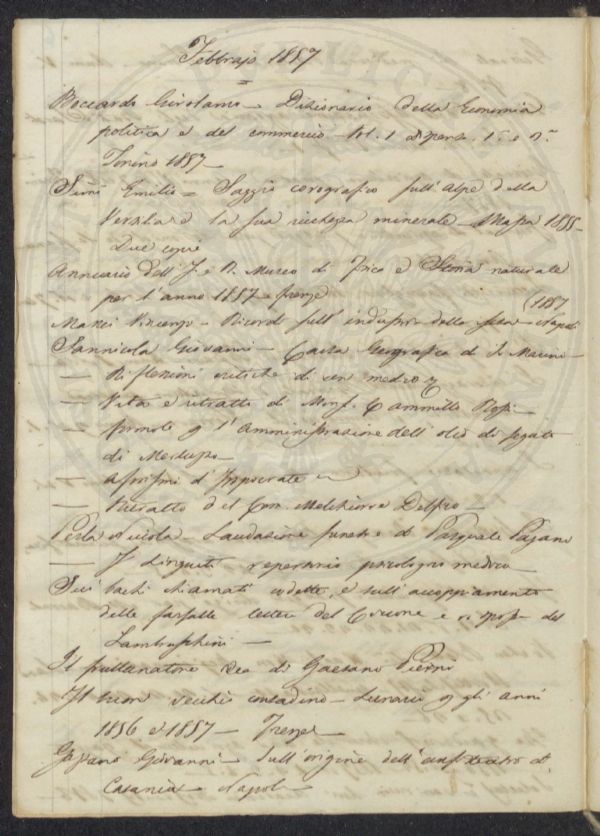 Febbrajo 1857
Boccardo Girolamo - Dizionario della Economia
politica e del commercio - Vol. 1 dispensa 1a e 2a
Torino 1857 -
Simi Emilio = Saggio corografico sull'alpe della
Versilia e la sua ricchezza minerale - Massa 1855 -
Due copie
Annuario dell'I. e R. Museo di Fisica e Storia naturale
per l'anno 1857 Firenze
(1857
Vincenzo - Ricordi sull' industria della seta - Napoli
Sannicola Giovanni - Carta Geografica di S. Marino -
— Riflessioni critiche di un medico
— Vita e ritratto di Monsr. Cammillo Rossi -
— Formole p l'amministrazione dell'olio di fegato
di Merluzzo -
— Aforismi d'Ippocrate -
— Ritratto del Com. Melchiorre Delfico -
Perla Nicola - Laudazione funebre di Pasquale Pagano
— repertorio psicologico medico -
Sui bachi chiamati e sull'accoppiamento
delle farfalle lettera del Ciccone e risposta del
Lambruschini -
Il di Gaetano Pierni
Il vecchio contadino - Lunario p gli anni
1856 e 1857 - Firenze
Giovanni - Sull'origine dell'anfiteatro di
Napoli -